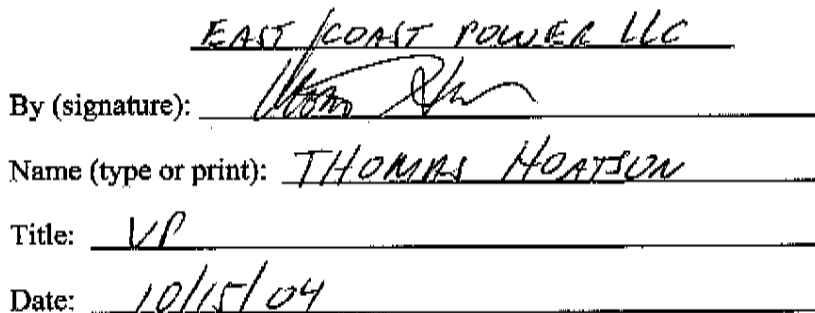 EAST COAST POWER LLC
By (signature):
Name (type or print): THOMAS HOATSON
Title: VP
Date: 10/15/04